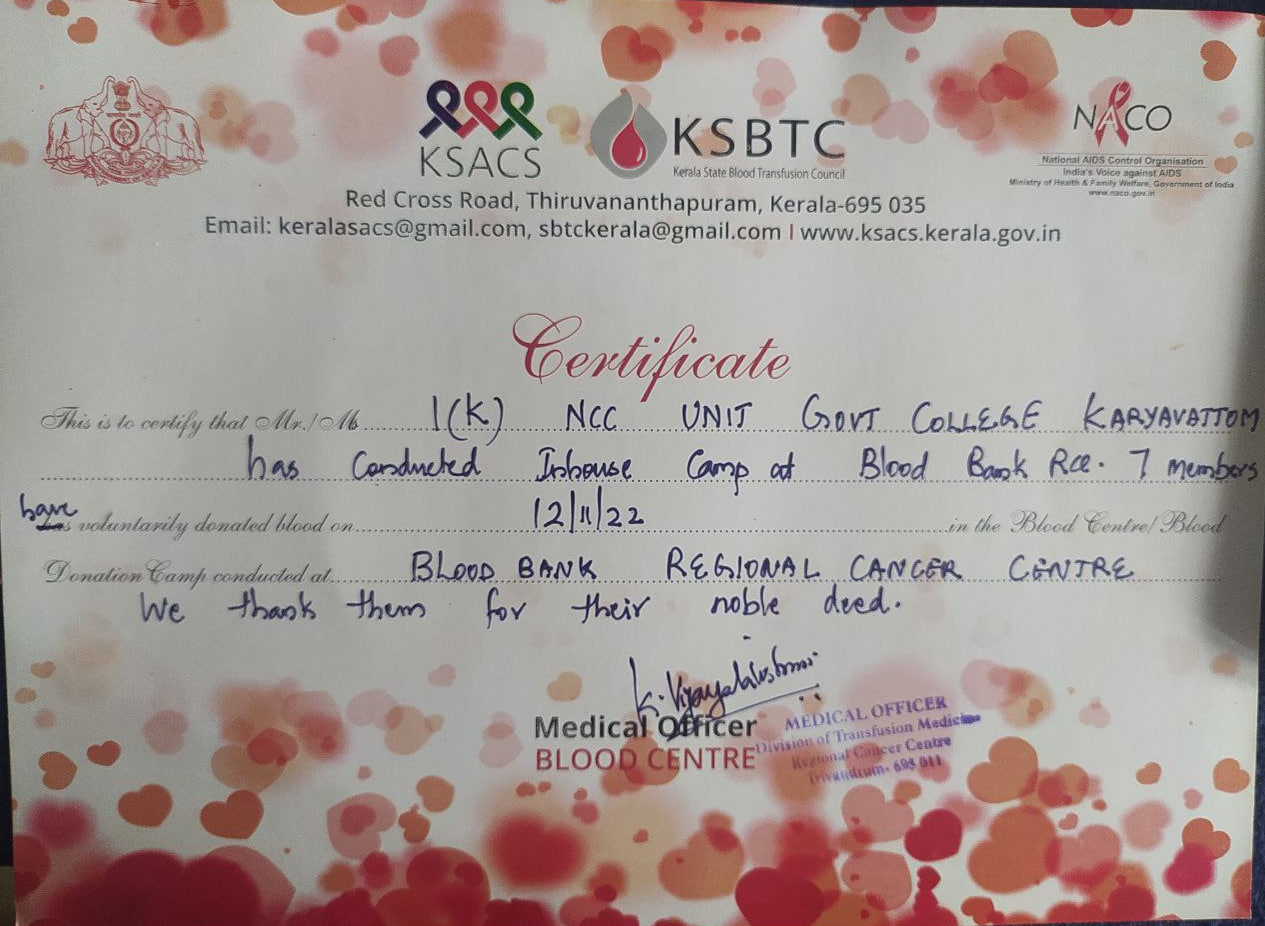 KSACS
KSBTC
Kerala State Blood Transfusion Council
NACO
National AIDS Control Organisation
India's Voice against AIDS
Ministry of Health & Family Welfare, Government of India
www.naco.gov.in
Red Cross Road, Thiruvananthapuram, Kerala-695 035
Email: keralasacs@gmail.com, sbtckerala@gmail.com I www.ksacs.kerala.gov.in
Certificate
This is to certify that Mr./Ms 1(K) NCC UNIT GOVT COLLEGE KARYAVATTOM
has Conducted Inhouse Camp at Blood Bank Rcc. 7 members
have voluntarily donated blood on 12/11/22 in the Blood Centre/Blood
Donation Camp conducted at BLOOD BANK REGIONAL CANCER CENTRE
We thank them for their noble deed.
K. Vijayalakshmi
Medical Officer
BLOOD CENTRE
MEDICAL OFFICER
Division of Transfusion Medicine
Regional Cancer Centre
Trivandrum- 695 011